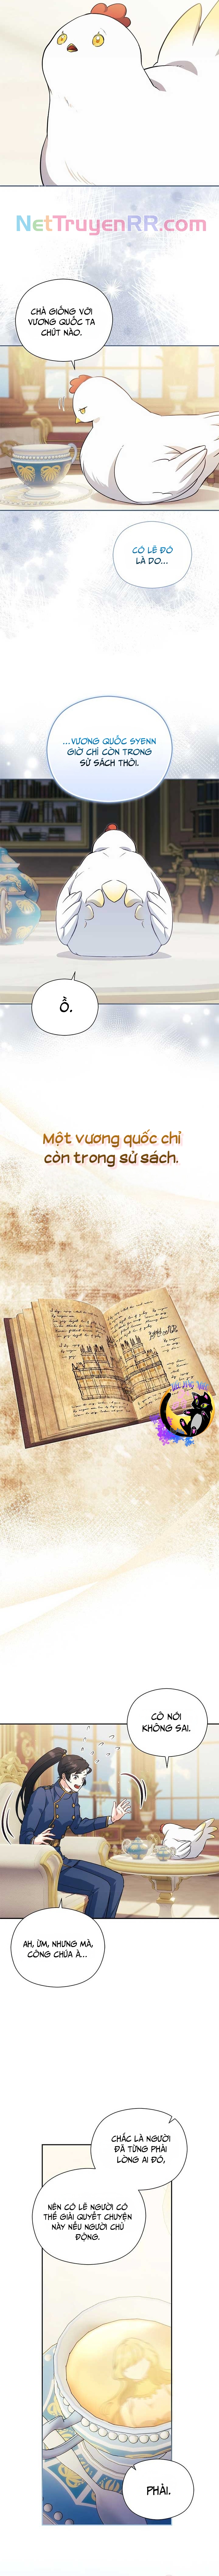 NetTruyenRR.com
CHẢ GIỐNG VỚI
VƯƠNG QUỐC TA
CHÚT NÀO.
CÓ LẼ ĐÓ
LÀ DO...
...VƯƠNG QUỐC SYENN
GIỜ CHỈ CÒN TRONG
SỬ SÁCH THÔI.
Ồ.
Một vương quốc chỉ
còn trong sử sách.
CÔ NÓI
KHÔNG SAI.
AH, ỪM, NHƯNG MÀ,
CÔNG CHÚA À...
CHẮC LÀ NGƯỜI
ĐÃ TỪNG PHẢI
LÒNG AI ĐÓ,
NÊN CÓ LẼ NGƯỜI CÓ
THỂ GIẢI QUYẾT CHUYỆN
NÀY NẾU NGƯỜI CHỦ
ĐỘNG.
PHẢI.